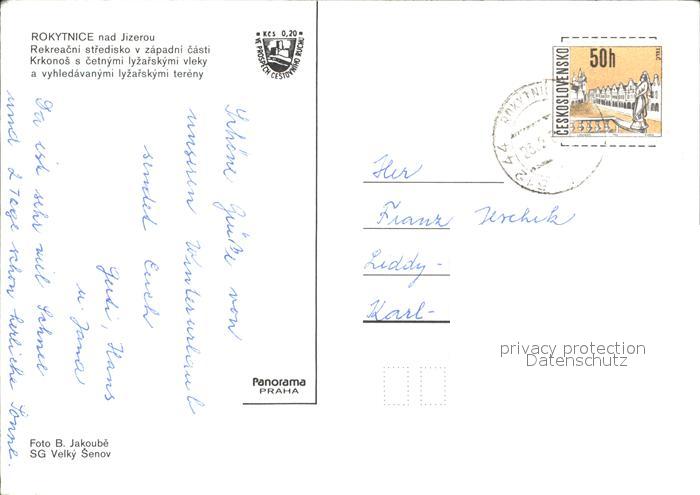 ROKYTNICE nad Jizerou
Rekreační středisko v západní části
Krkonoš s četnými lyžařskými vleky
a vyhledávanými lyžařskými terény
Kčs 0,20
VE PROSPĚCH CESTOVNÍHO RUCHU
ČESKOSLOVENSKO
50h
TELČ
512 44 ROKYTNICE
Schöne Grüße von
unseren Winterurlaub
sendet Euch
Gusti, Hans
u. Jana
Da ist sehr viel Schnee
und 2 Tage schon herliche Sonne.
Her
Franz
Leddy-
Karl-
privacy protection
Datenschutz
Panorama
PRAHA
Foto B. Jakoubě
SG Velký Šenov